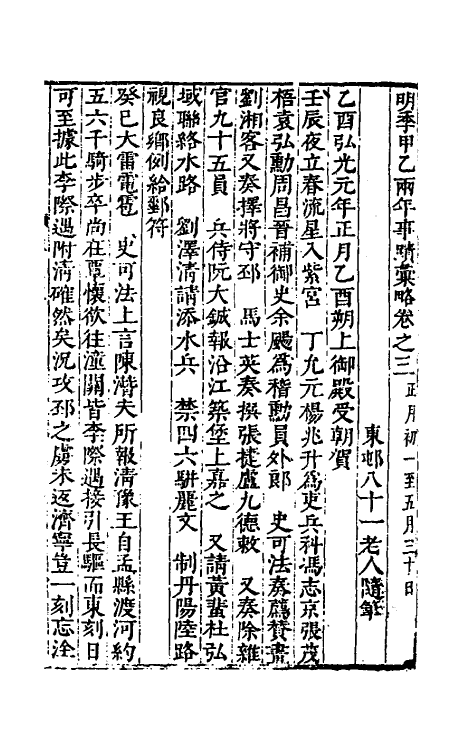 明季甲乙兩年事蹟彙略卷之三 正月初一到五月三十日
東邨八十一老人隨筆
乙酉弘光元年正月乙酉朔上御殿受朝賀
壬辰夜立春流星入紫宮 丁允元楊兆升爲吏兵科馮志京張茂
梧袁弘勳周昌晉補御史余颺爲稽勳員外郎 史可法奏薦贊畫
劉湘客又奏擇將守邳 馬士英奏撰張捷盧九德敕 又奏除雜
官九十五員 兵侍阮大鋮報沿江築堡上嘉之 又請黃蜚杜弘
域聯絡水路 劉澤清請添水兵 禁四六駢麗文 制丹陽陸路
視良鄉例給郵符
癸巳大雷電雹 史可法上言陳潛夫所報清豫王自孟縣渡河約
五六千騎步卒尚在覃懷欲往潼關皆李際遇接引長驅而東刻日
可至據此李際遇附清確然矣況攻邳之虜未返濟寧豈一刻忘淮